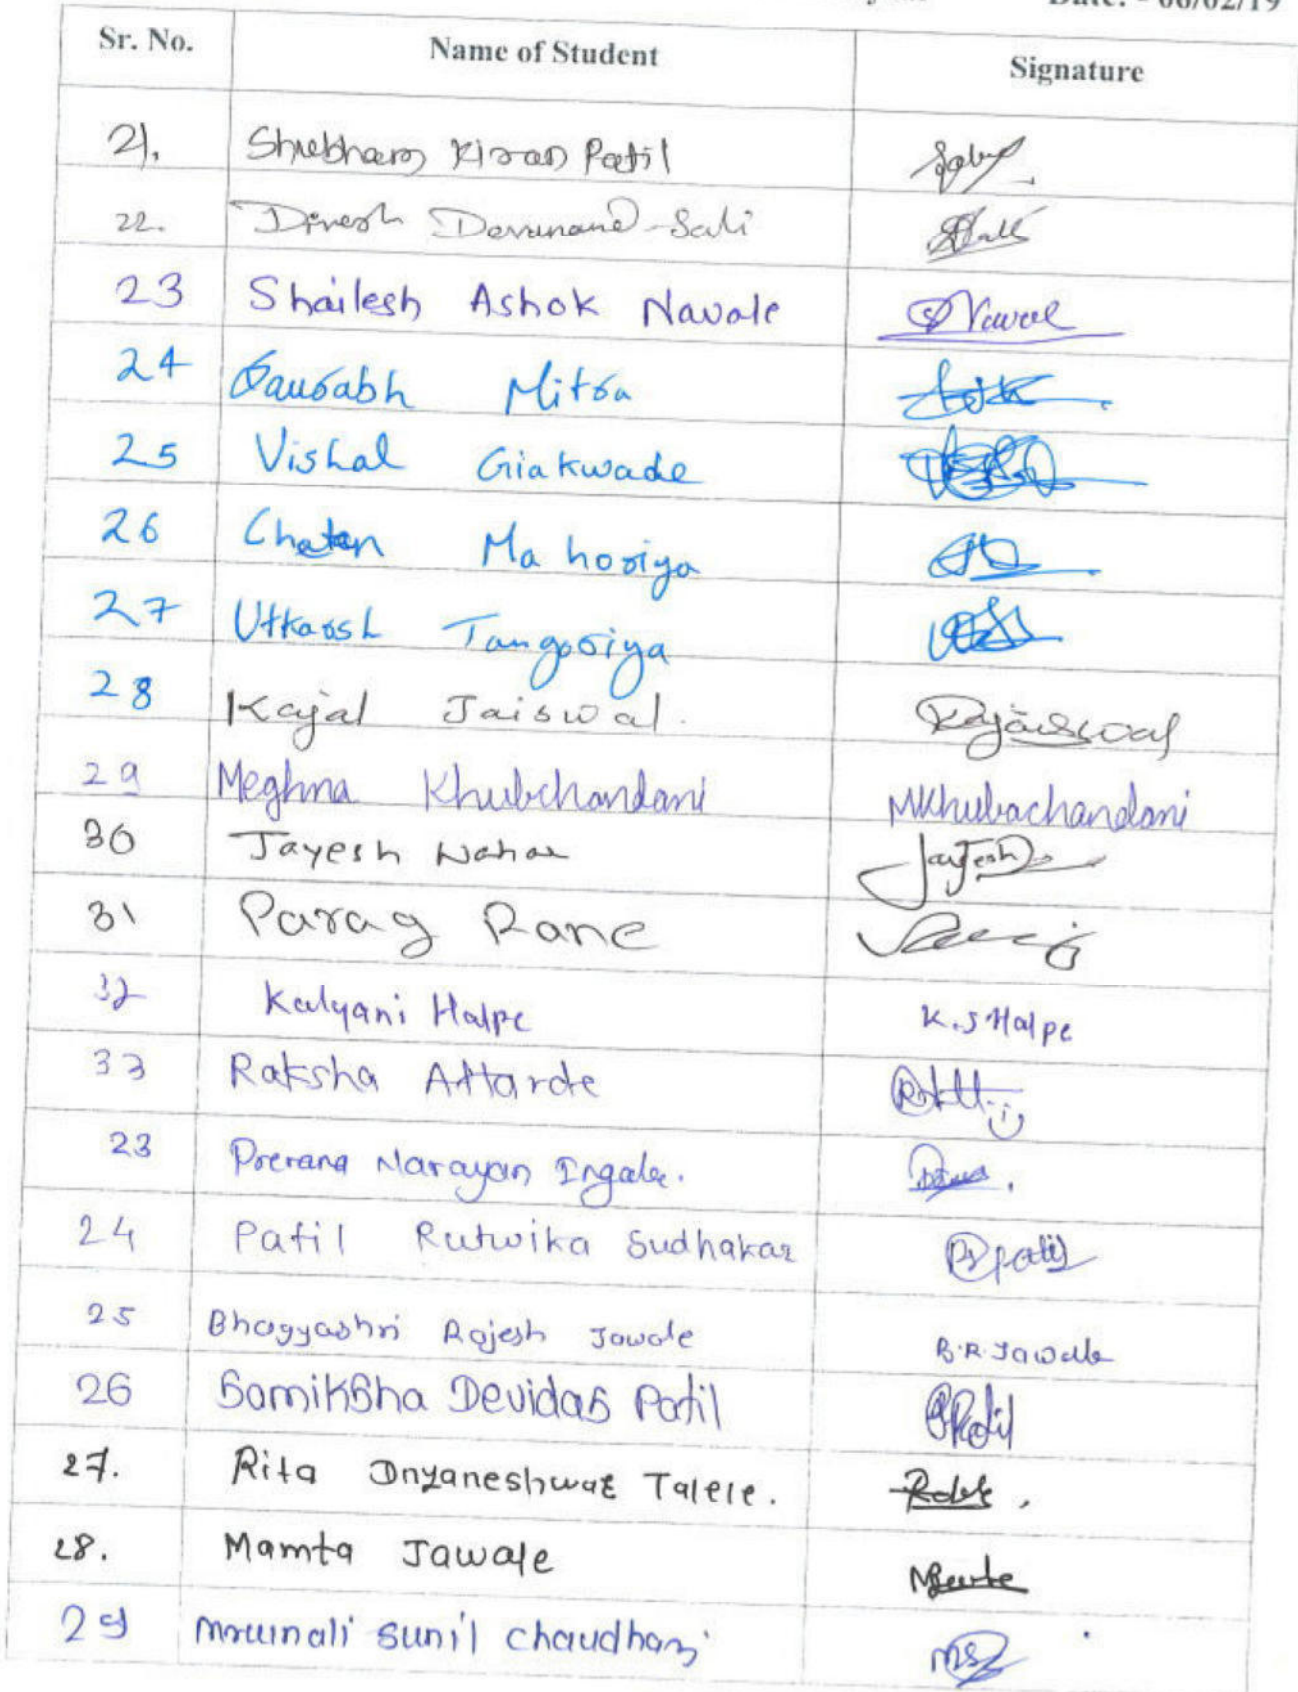 Date: - 06/02/19
Sr. No. Name of Student Signature
21. Shubham Kiran Patil
22. Dinesh Devanand Sali
23 Shailesh Ashok Navale
24 Saurabh Mitra
25 Vishal Giakwade
26 Chetan Mahoriya
27 Utkarsh Tangoriya
28 Kajal Jaiswal. Kajaiswal
29 Meghna Khubchandani MKhubachandani
30 Jayesh Nahar Jayesh
31 Parag Rane
32 Kalyani Halpe K.S Halpe
33 Raksha Attarde
23 Prerana Narayan Ingale.
24 Patil Rutwika Sudhakar Rpatil
25 Bhagyashri Rajesh Jawale B.R.Jawale
26 Samiksha Devidas Patil SPatil
27. Rita Dnyaneshwar Talele.
28. Mamta Jawale
29 Mrunali Sunil Chaudhari